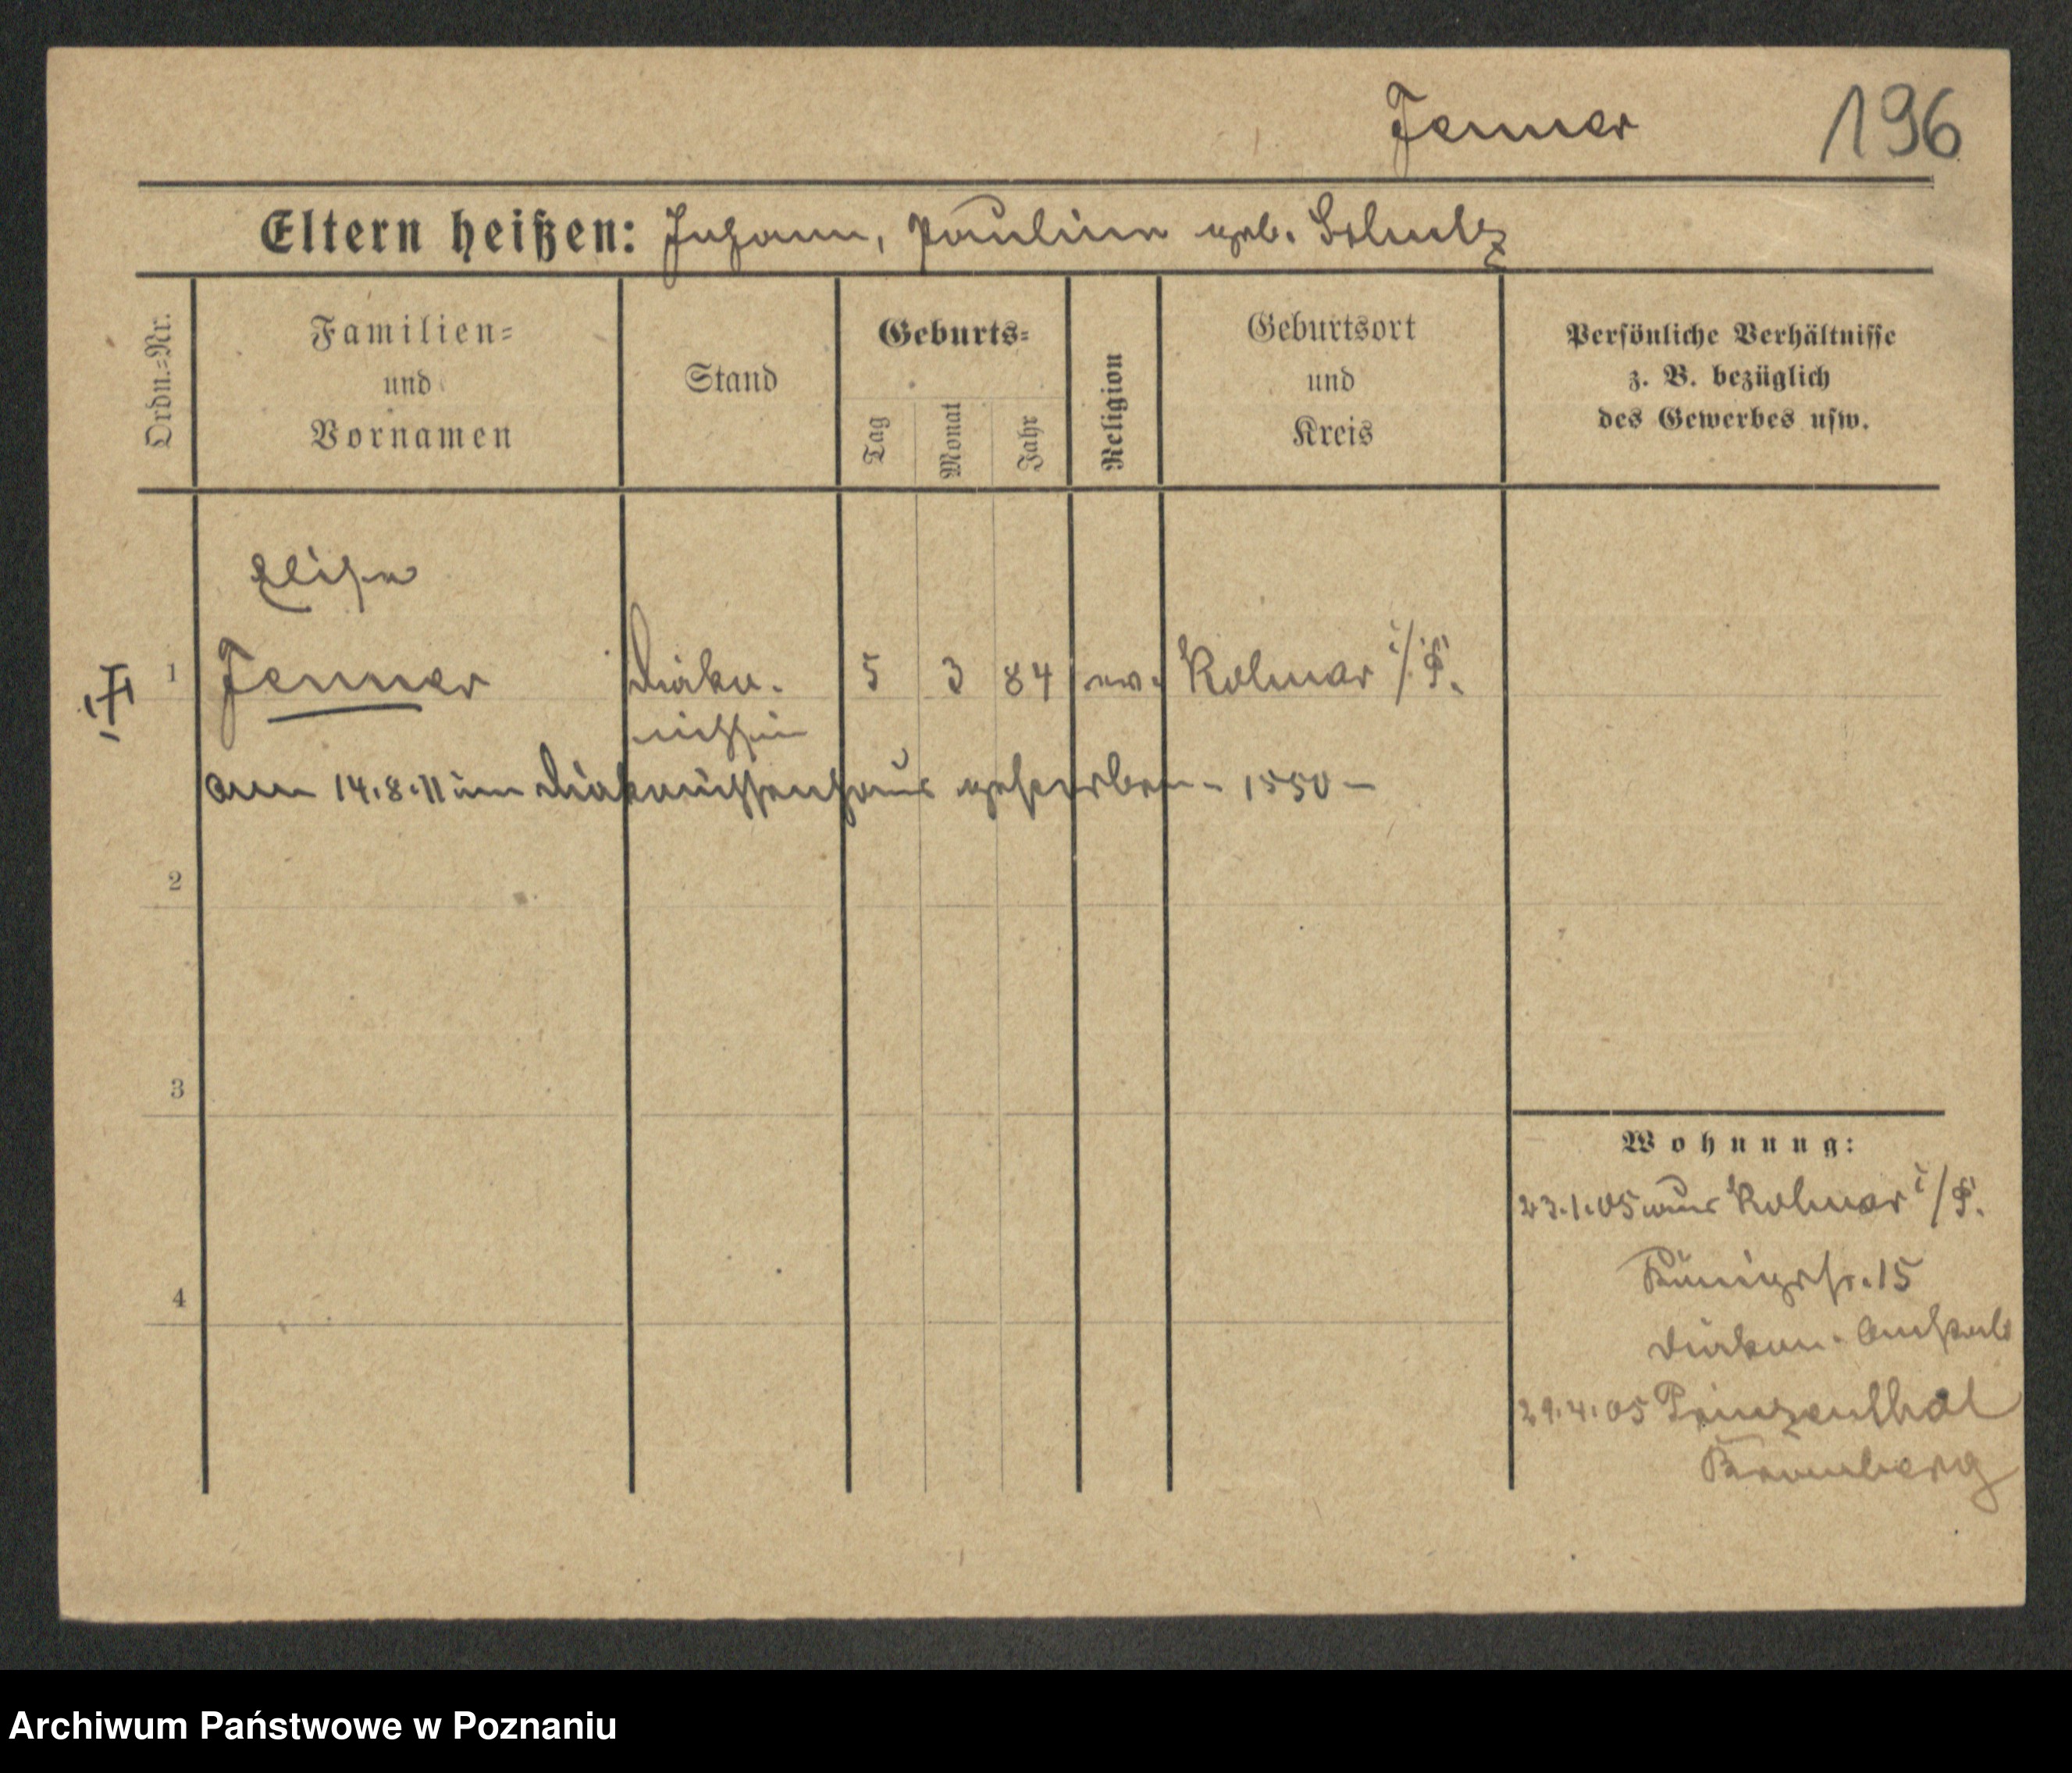 Jenner 196
Eltern heißen: Johann, Pauline geb. Schulz
Ordn.=Nr.
Familien=
und
Vornamen
Stand
Geburts=
Tag
Monat
Jahr
Religion
Geburtsort
und
Kreis
Persönliche Verhältnisse
z. B. bezüglich
des Gewerbes usw.
1 Jenner Diako. 5 3 84 ev. Kolmar i/P.
nissin
am 14.8.11 im Diakonissenhaus gestorben - 1550 -
2
3
4
Wohnung:
23.1.05 aus Kolmar i/P.
Königstr. 15
Diakon. Anstalt
29.4.05 Prinzenthal
Bromberg
Archiwum Państwowe w Poznaniu